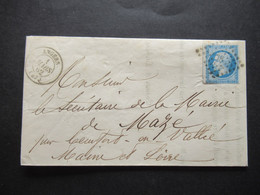 Monsieur
le Secrétaire de la Mairie
de Mazé
par Beaufort en Vallée
Maine et Loire